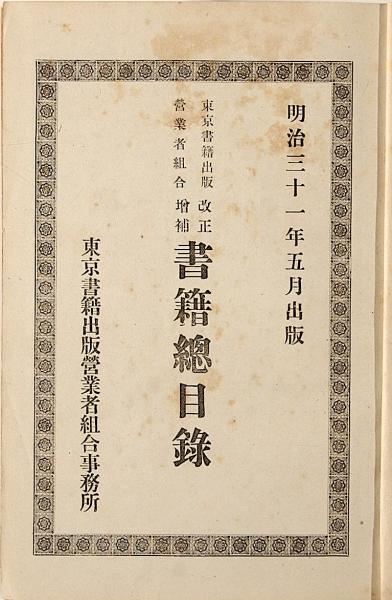 明治三十一年五月出版
東京書籍出版
營業者組合
改正
增補
書籍總目錄
東京書籍出版營業者組合事務所